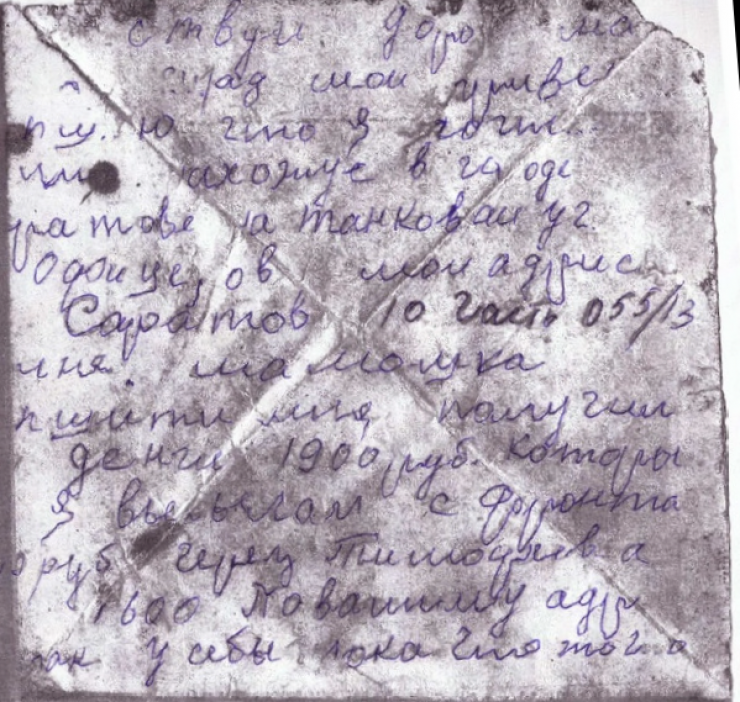 ствуй доро ма
рад мои приве
пш. ю что я
нахожус в го оде
ратове на танковаи уч
Офице ов мои адрис
Саратов 10 часть 055/13
мня. мамошка
пшити мня получил
денги 1900 руб. которы
Я высылал с фронта
руб через Тимофеева
1600 По вашиму адр
так у себы пока что того